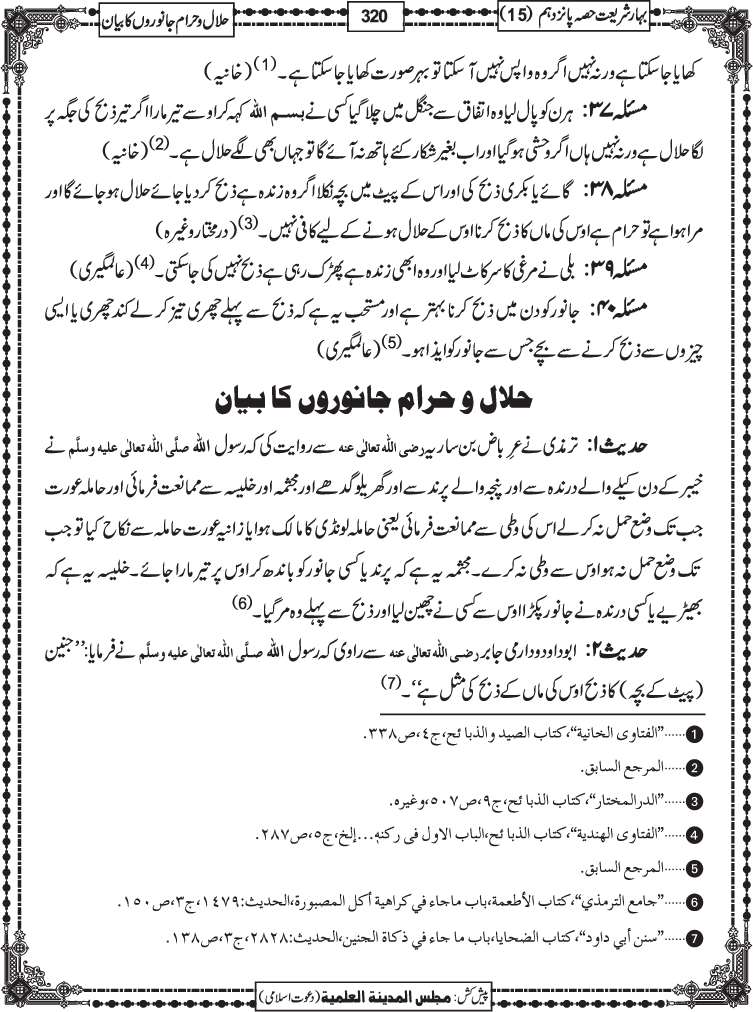 بہارِ شریعت حصہ پانزدہم (15)
320
حلال و حرام جانوروں کا بیان
کھایا جاسکتا ہے ورنہ نہیں اگر وہ واپس نہیں آسکتا تو بہر صورت کھایا جاسکتا ہے۔(1) (خانیہ)
مسئلہ ۳۷: ہرن کو پال لیا وہ اتفاق سے جنگل میں چلا گیا کسی نے بسم اللہ کہہ کر اوسے تیر مارا اگر تیر ذبح کی جگہ پر
لگا حلال ہے ورنہ نہیں ہاں اگر وحشی ہوگیا اور اب بغیر شکار کئے ہاتھ نہ آئے گا تو جہاں بھی لگے حلال ہے۔(2) (خانیہ)
مسئلہ ۳۸: گائے یا بکری ذبح کی اور اس کے پیٹ میں بچہ نکلا اگر وہ زندہ ہے ذبح کر دیا جائے حلال ہو جائے گا اور
مرا ہوا ہے تو حرام ہے اوس کی ماں کا ذبح کرنا اوس کے حلال ہونے کے لیے کافی نہیں۔(3) (درمختار وغیرہ)
مسئلہ ۳۹: بلی نے مرغی کا سر کاٹ لیا اور وہ ابھی زندہ ہے پھڑک رہی ہے ذبح نہیں کی جاسکتی۔(4) (عالمگیری)
مسئلہ ۴۰: جانور کو دن میں ذبح کرنا بہتر ہے اور مستحب یہ ہے کہ ذبح سے پہلے چھری تیز کر لے کند چھری یا ایسی
چیزوں سے ذبح کرنے سے بچے جس سے جانور کو ایذا ہو۔(5) (عالمگیری)
حلال و حرام جانوروں کا بیان
حدیث ۱: ترمذی نے عرباض بن ساریہ رضی اللہ تعالٰی عنہ سے روایت کی کہ رسول اللہ صلَّی اللہ تعالٰی علیہ وسلَّم نے
خیبر کے دن کیلے والے درندہ سے اور پنجہ والے پرند سے اور گھریلو گدھے اور مجثمہ اور خلیسہ سے ممانعت فرمائی اور حاملہ عورت
جب تک وضع حمل نہ کرلے اس کی وطی سے ممانعت فرمائی یعنی حاملہ لونڈی کا مالک ہوا یا زانیہ عورت حاملہ سے نکاح کیا تو جب
تک وضع حمل نہ ہو اوس سے وطی نہ کرے۔ مجثمہ یہ ہے کہ پرند یا کسی جانور کو باندھ کر اوس پر تیر مارا جائے۔ خلیسہ یہ ہے کہ
بھیڑیے یا کسی درندہ نے جانور پکڑا اوس سے کسی نے چھین لیا اور ذبح سے پہلے وہ مرگیا۔(6)
حدیث ۲: ابوداود و دارمی جابر رضی اللہ تعالٰی عنہ سے راوی کہ رسول اللہ صلَّی اللہ تعالٰی علیہ وسلَّم نے فرمایا: ’’جنین
(پیٹ کے بچہ) کا ذبح اوس کی ماں کے ذبح کی مثل ہے‘‘۔(7)
1......”الفتاوى الخانية“، كتاب الصيد والذبائح، ج٤، ص٣٣٨.
2......المرجع السابق.
3......”الدر المختار“، كتاب الذبائح، ج٩، ص٥٠٧، وغيره.
4......”الفتاوى الهندية“، كتاب الذبائح، الباب الاول في ركنه...إلخ، ج٥، ص٢٨٧.
5......المرجع السابق.
6......”جامع الترمذي“، كتاب الأطعمة، باب ماجاء في كراهية أكل المصبورة، الحديث: ١٤٧٩، ج٣، ص١٥٠.
7......”سنن أبي داود“، كتاب الضحايا، باب ما جاء في ذكاة الجنين، الحديث: ٢٨٢٨، ج٣، ص١٣٨.
پیش کش: مجلس المدینۃ العلمیۃ (دعوتِ اسلامی)